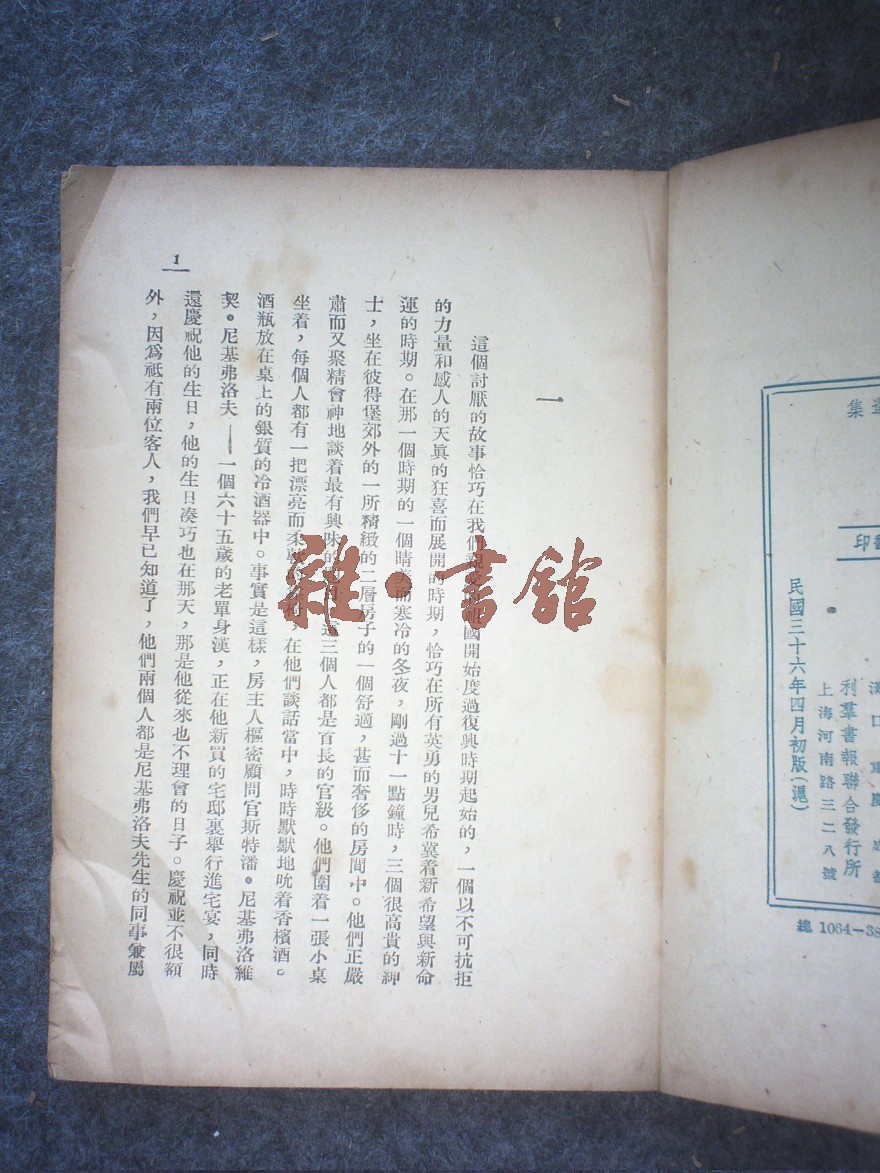 集
印
利羣書報聯合發行所
上海河南路三二八號
民國三十六年四月初版(滬)
總 1064—38
一
這個討厭的故事恰巧在我們國開始度過復興時期起始的，一個以不可抗拒
的力量和感人的天眞的狂喜而展開的時期，恰巧在所有英勇的男兒希冀着新希望與新命
運的時期。在那一個時期的一個晴美而寒冷的冬夜，剛過十一點鐘時，三個很高貴的紳
士，坐在彼得堡郊外的一所精緻的二層房子的一個舒適，甚而奢侈的房間中。他們正嚴
肅而又聚精會神地談着最有興味的這三個人都是首長的官級。他們圍着一張小桌
坐着，每個人都有一把漂亮而柔，在他們談話當中，時時默默地吮着香檳酒。
酒瓶放在桌上的銀質的冷酒器中。事實是這樣，房主人樞密顧問官斯特潘。尼基弗洛維
契。尼基弗洛夫——一個六十五歲的老單身漢，正在他新買的宅邸裏舉行進宅宴，同時
還慶祝他的生日，他的生日湊巧也在那天，那是他從來也不理會的日子。慶祝並不很額
外，因爲祗有兩位客人，我們早已知道了，他們兩個人都是尼基弗洛夫先生的同事兼屬
1
雜·書舘